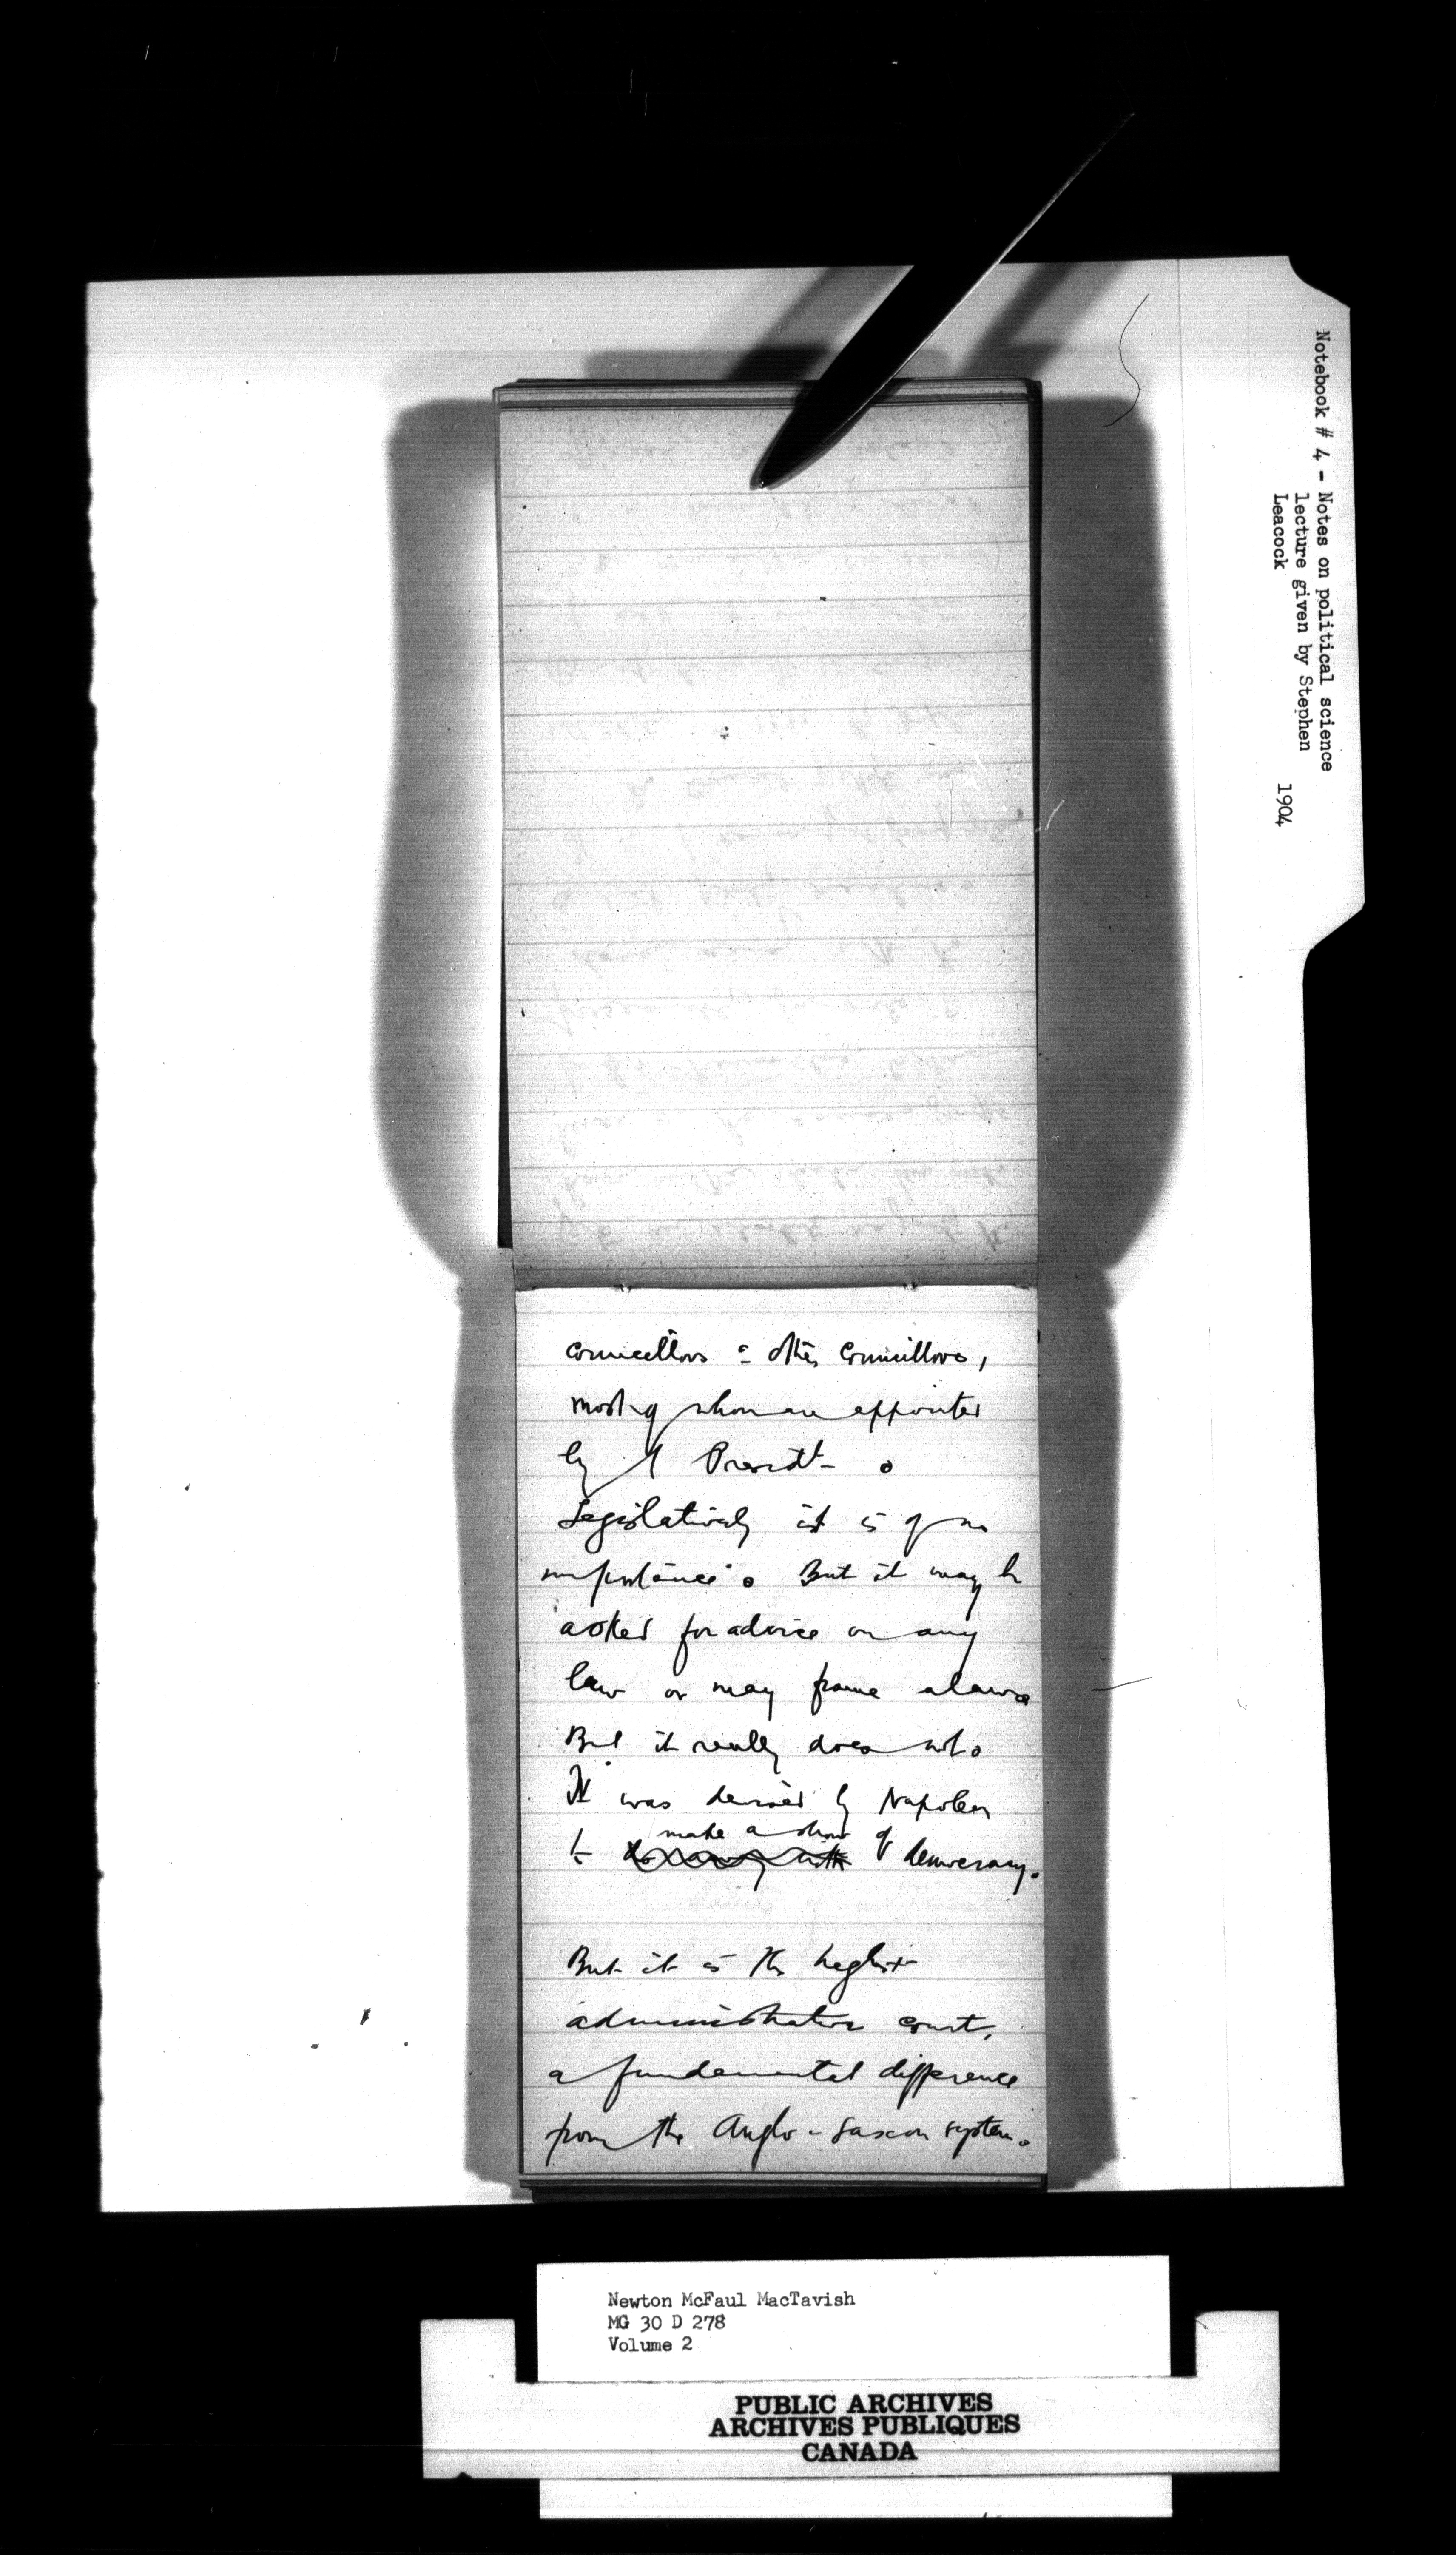 Notebook # 4 - Notes on political science
lecture given by Stephen
Leacock 1904
councillors & other councillors,
most of whom are appointed
by Presidt.
Legislatively it is of no
importance. But it may be
asked for advice on any
law or may frame a law.
But it really does not.
It was devised by Napoleon
to make a show of democracy.
But it is the highest
administrative court,
a fundamental difference
from the Anglo-Saxon system.
Newton McFaul MacTavish
MG 30 D 278
Volume 2
PUBLIC ARCHIVES
ARCHIVES PUBLIQUES
CANADA